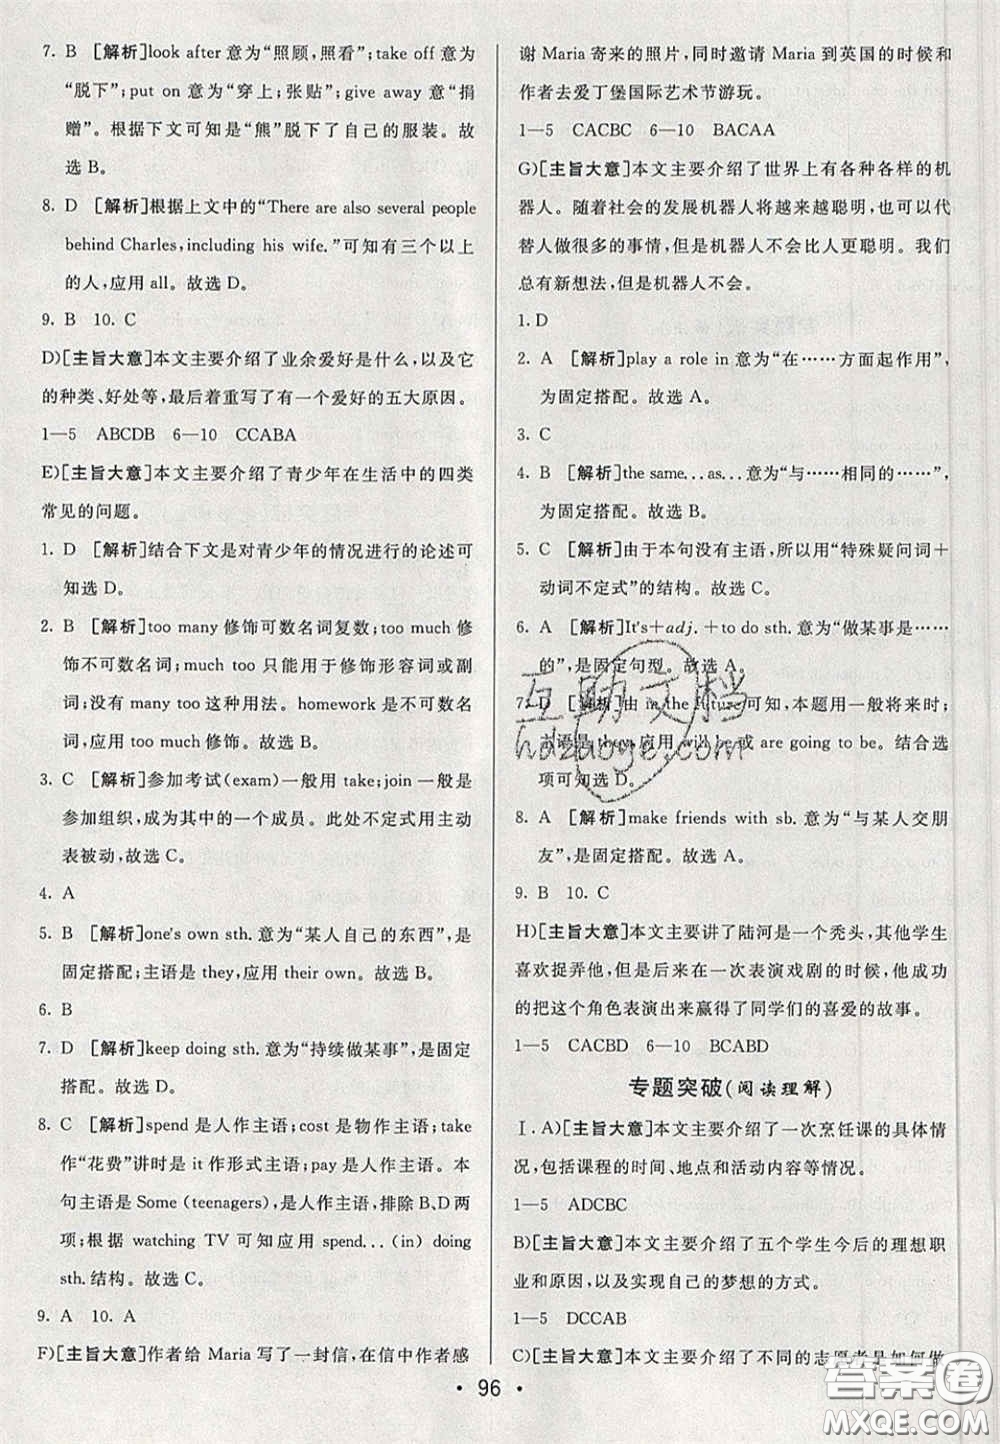 7. B [解析]look after意为“照顾,照看”;take off意为
“脱下”;put on意为“穿上;张贴”;give away意为“捐
赠”。根据下文可知是“熊”脱下了自己的服装。故
选B。
8. D [解析]根据上文中的“There are also several people
behind Charles, including his wife.”可知有三个以上
的人,应用all。故选D。
9. B 10. C
D)[主旨大意]本文主要介绍了业余爱好是什么,以及它
的种类、好处等,最后着重写了有一个爱好的五大原因。
1—5 ABCDB 6—10 CCABA
E)[主旨大意]本文主要介绍了青少年在生活中的四类
常见的问题。
1. D [解析]结合下文是对青少年的情况进行的论述可
知选D。
2. B [解析]too many修饰可数名词复数;too much修
饰不可数名词;much too只能用于修饰形容词或副
词;没有many too这种用法。homework是不可数名
词,应用too much修饰。故选B。
3. C [解析]参加考试(exam)一般用take;join一般用
参加组织,成为其中的一个成员。此处不定式用主动
表被动,故选C。
4. A
5. B [解析]one's own sth.意为“某人自己的东西”,是
固定搭配;主语是they,应用their own。故选B。
6. B
7. D [解析]keep doing sth.意为“持续做某事”,是固定
搭配。故选D。
8. C [解析]spend是人作主语;cost是物作主语;take
作“花费”讲时是it作形式主语;pay是人作主语。本
句主语是Some (teenagers),是人作主语,排除B、D两
项;根据watching TV可知应用spend...(in) doing
sth.结构。故选C。
9. A 10. A
F)[主旨大意]作者给Maria写了一封信,在信中作者感
谢Maria寄来的照片,同时邀请Maria到英国的时候和
作者去爱丁堡国际艺术节游玩。
1—5 CACBC 6—10 BACAA
G)[主旨大意]本文主要介绍了世界上有各种各样的机
器人。随着社会的发展机器人将越来越聪明,可以代
替人做很多的事情,但是机器人不会比人更聪明。我们
总有新想法,但是机器人不会。
1. D
2. A [解析]play a role in意为“在……方面起作用”,
为固定搭配。故选A。
3. C
4. B [解析]the same...as...意为“与……相同的……”,
为固定搭配。故选B。
5. C [解析]由于本句没有主语,所以用“特殊疑问词+
动词不定式”的结构。故选C。
6. A [解析]It's+adj.+to do sth.意为“做某事是……
的”,是固定句型。故选A。
7. D [解析]由in the future可知,本题用一般将来时;
主语是they,应用will be或are going to be。结合选
项可知选D。
8. A [解析]make friends with sb.意为“与某人交朋
友”,是固定搭配。故选A。
9. B 10. C
H)[主旨大意]本文主要讲了陆河是一个秃头,其他学生
喜欢捉弄他,但是后来在一次表演戏剧的时候,他成功
的把这个角色表演出来赢得了同学们的喜爱的故事。
1—5 CACBD 6—10 BCABD
专题突破(阅读理解)
Ⅰ. A)[主旨大意]本文主要介绍了一次烹饪课的具体情
况,包括课程的时间、地点和活动内容等情况。
1—5 ADCBC
B)[主旨大意]本文主要介绍了五个学生今后的理想职
业和原因,以及实现自己的梦想的方式。
1—5 DCCAB
C)[主旨大意]本文主要介绍了不同的志愿者是如何做
• 96 •
互助文档
hdzuoye.com
答案圈
MXQE.COM